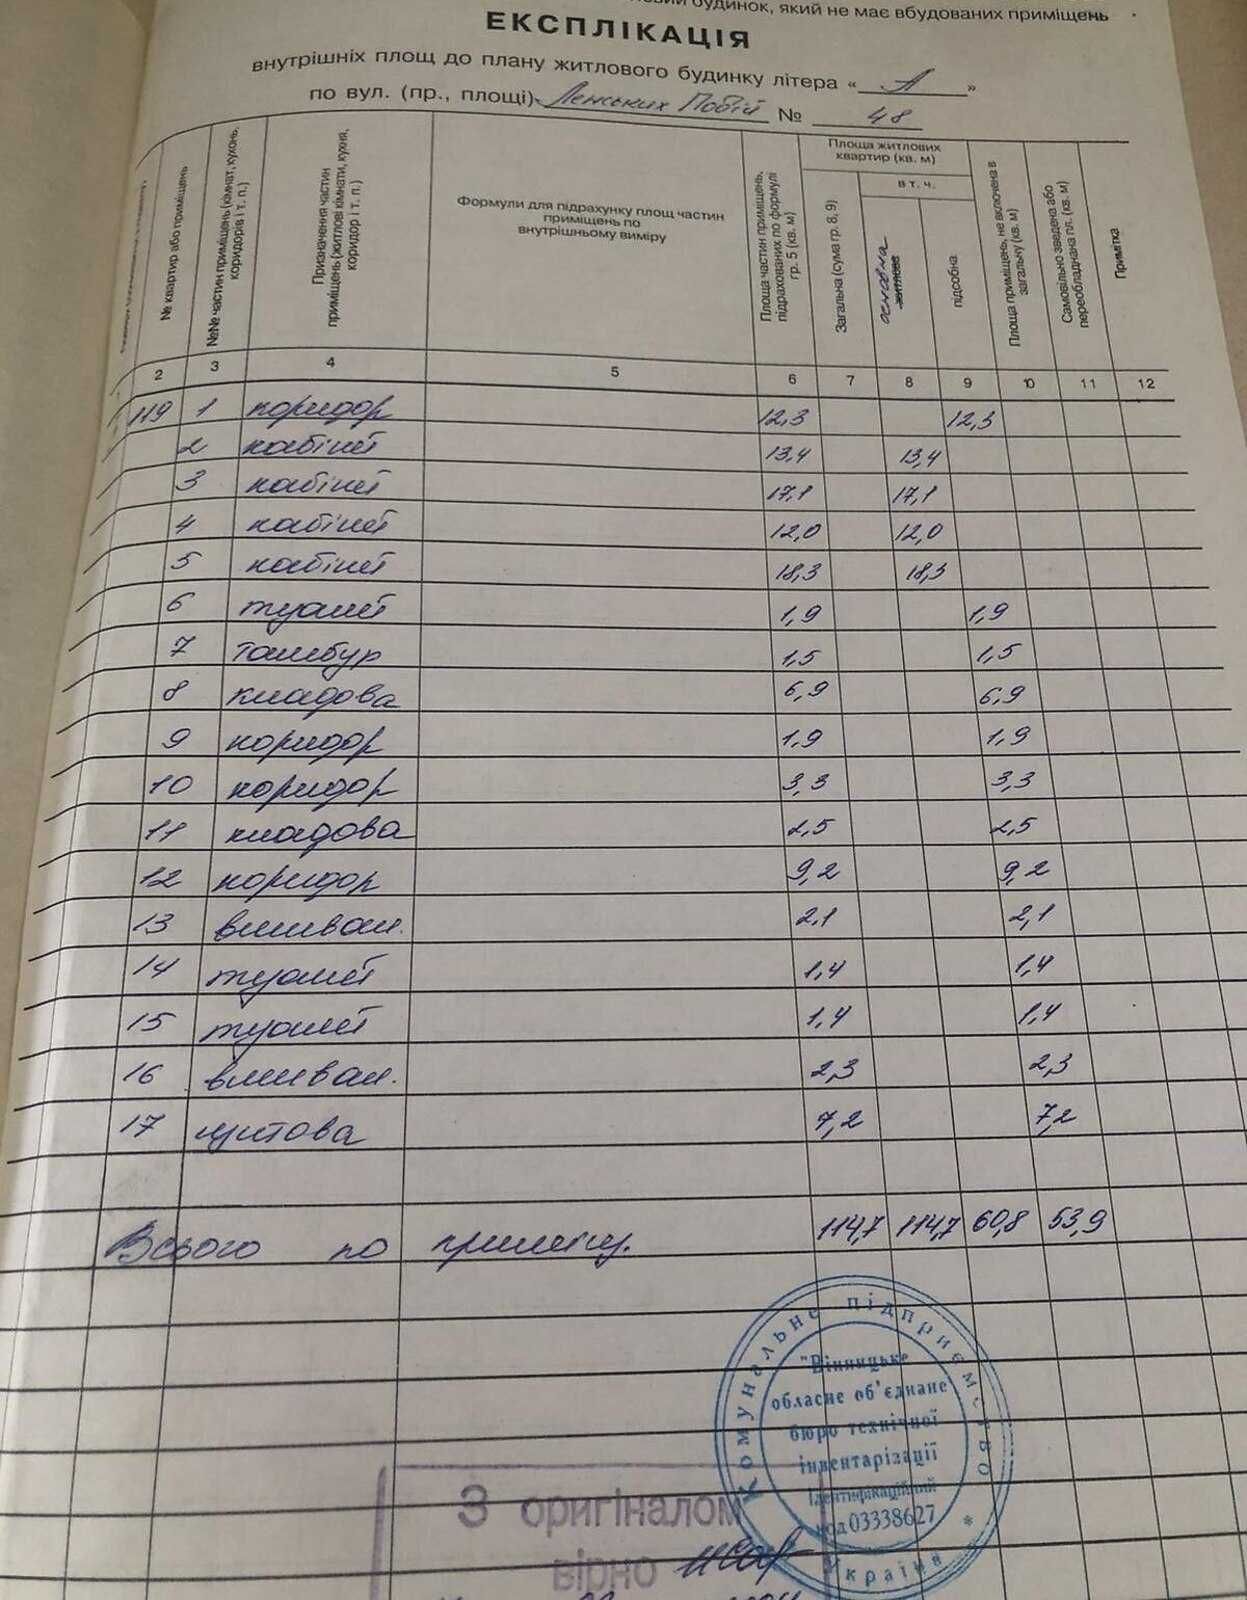 будинок, який не має вбудованих приміщень
ЕКСПЛІКАЦІЯ
внутрішніх площ до плану житлового будинку літера « А »
по вул. (пр., площі) Ленських Побій № 48
№ квартир або приміщень
№№ частин приміщень (кімнат, кухонь, коридорів і т. п.)
Призначення частин приміщень (житлові кімнати, кухня, коридор і т. п.)
Формули для підрахунку площ частин приміщень по внутрішньому виміру
Площа частин приміщень, підрахованих по формулі гр. 5 (кв. м)
Площа житлових квартир (кв. м)
Загальна (сума гр. 8, 9)
в т. ч.
основна
житлове
підсобна
Площа приміщень, не включена в загальну (кв. м)
Самовільно зведена або переобладнана пл. (кв. м)
Примітка
2 3 4 5 6 7 8 9 10 11 12
119 1 коридор 12,3 12,3
2 кабінет 13,4 13,4
3 кабінет 17,1 17,1
4 кабінет 12,0 12,0
5 кабінет 18,3 18,3
6 туалет 1,9 1,9
7 тамбур 1,5 1,5
8 кладова 6,9 6,9
9 коридор 1,9 1,9
10 коридор 3,3 3,3
11 кладова 2,5 2,5
12 коридор 9,2 9,2
13 вмивал. 2,1 2,1
14 туалет 1,4 1,4
15 туалет 1,4 1,4
16 вмивал. 2,3 2,3
17 щитова 7,2 7,2
Всього по приміщ. 114,7 114,7 60,8 53,9
Комунальне підприємство
"Вінницьке
обласне об'єднане
бюро технічної
інвентаризації
Ідентифікаційний
код 03338627
Україна *
З оригіналом
вірно